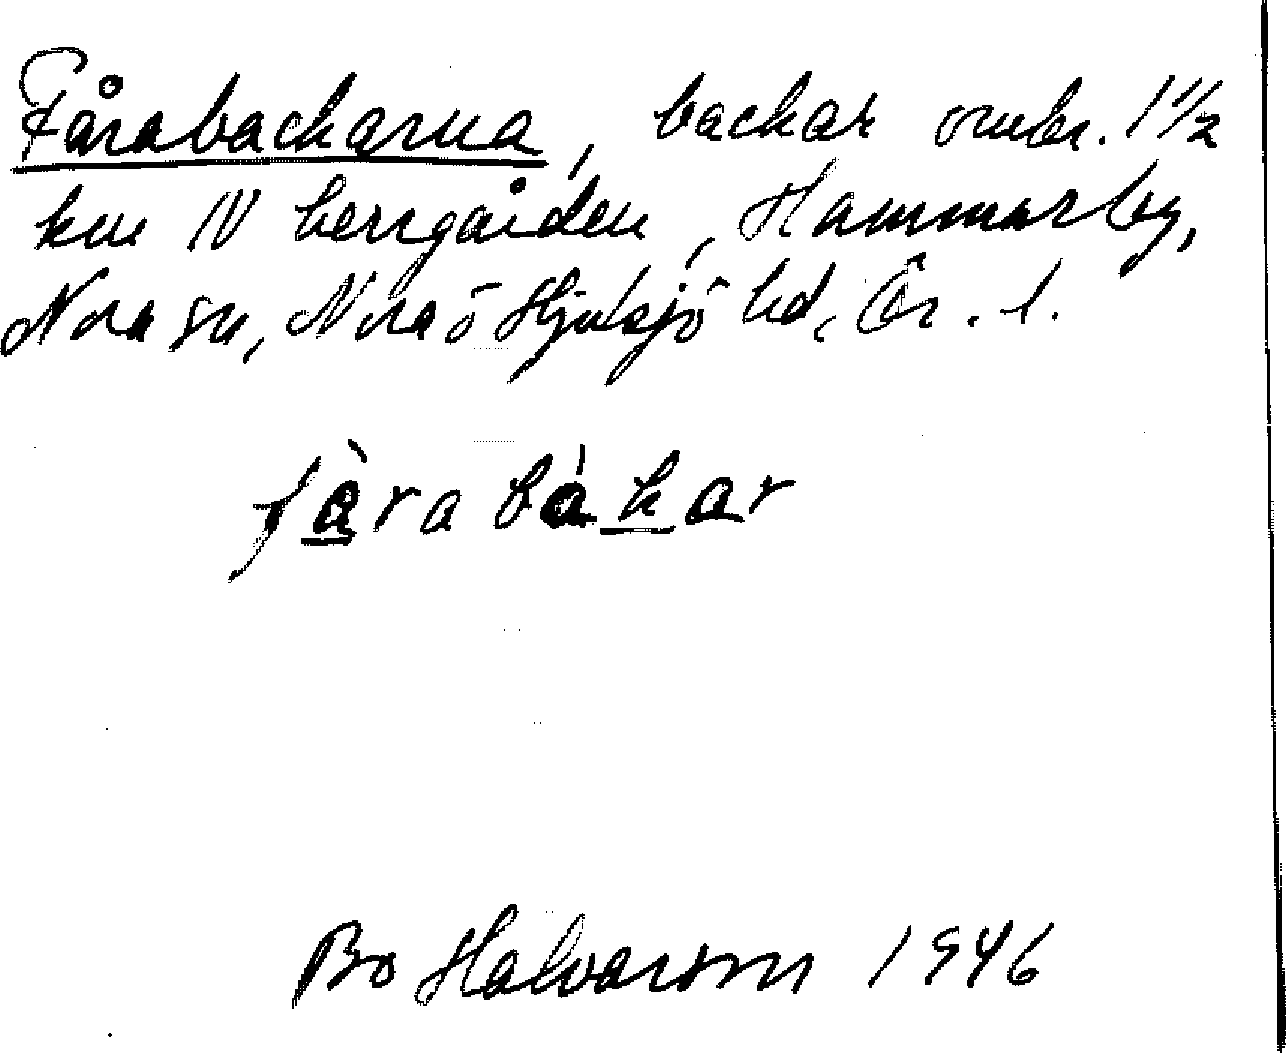 Fårabackarna, backar omkr. 1 1/2
km N herrgården, Hammarby,
Nora sn, Nora ö Hjulsjö hd, Ör. l.
fàrabákar
Bo Halvarson 1946